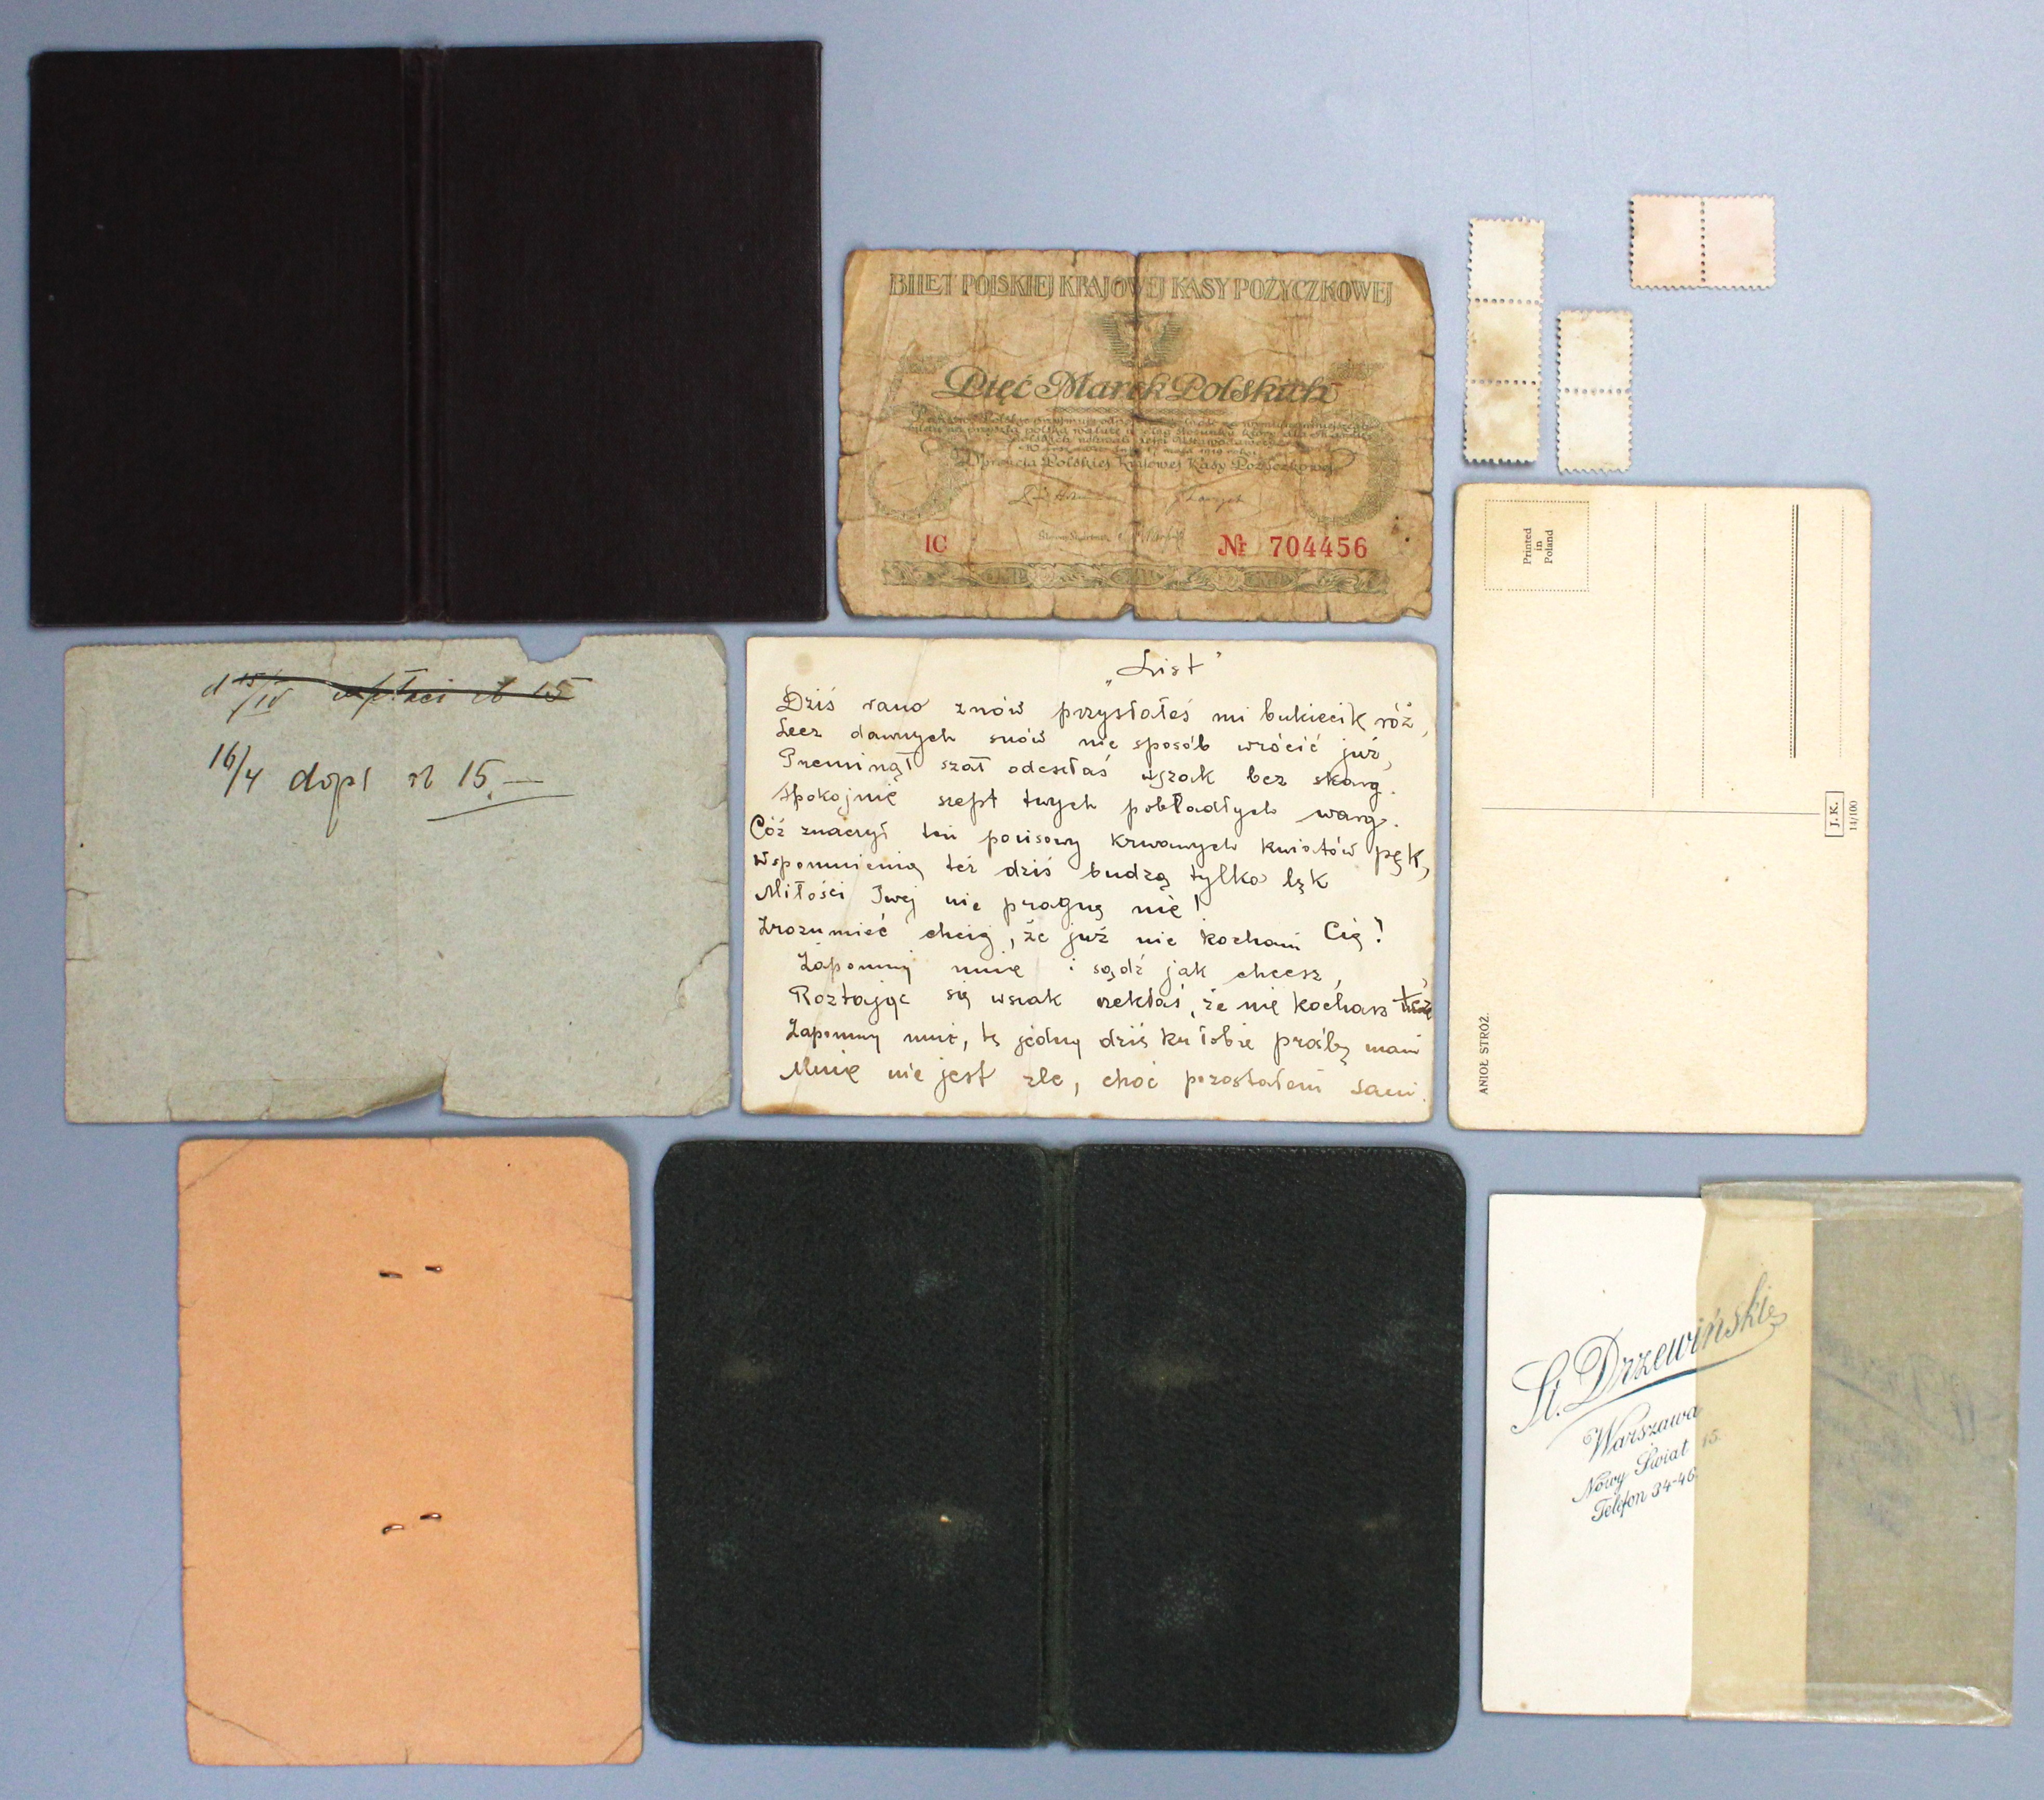 BILET POLSKIEJ KRAJOWEJ KASY POŻYCZKOWEJ
Pięć Marek Polskich
Dyrekcja Polskiej Krajowej Kasy Pożyczkowej
IC
№ 704456
Printed
in
Poland
J. K.
14/100
ANIOŁ STRÓŻ.
16/4 dopł zł 15.—
„List”
Dziś rano znów przysłałeś mi bukiecik róż,
Lecz dawnych snów nie sposób wrócić już,
Preminął szał odeszłaś wszak bez skarg.
Spokojnie szept twych pobladłych warg.
Cóż znaczył ten ponsowy krwawych kwiatów pęk,
Wspomnienia też dziś budzą tylko lęk
Miłości Twej nie pragnę nie!
Zrozumieć chciej, że już nie kocham Cię!
Zapomnij mnie i sądź jak chcesz,
się wszak rzekłaś, że nie kochasz
Zapomnij mnie, tę jedną dziś ku Tobie prośbę mam
Mnie nie jest źle, choć pozostałem sam.
St. Drzewiński
Warszawa
Nowy Świat 15.
Telefon 34-46